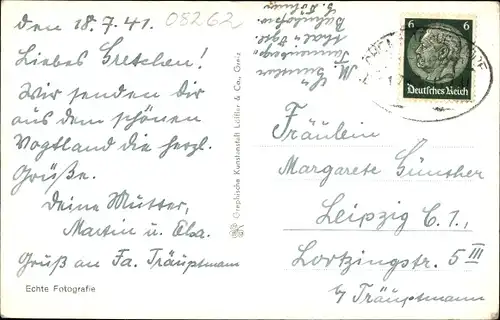 den 18.7.41. 08262
Liebes Gretchen!
Wir senden dir
aus dem schönen
Vogtland die herzl.
Grüße.
Deine Mutter,
Martin u. Elsa.
Gruß an Fa. Träuptmann
Echte Fotografie
Graphische Kunstanstalt Löffler & Co., Greiz
M. Günther
6 6
Deutsches Reich
Fräulein
Margarete Günther
Leipzig C.1,
Lortzingstr. 5 III
b/ Träuptmann